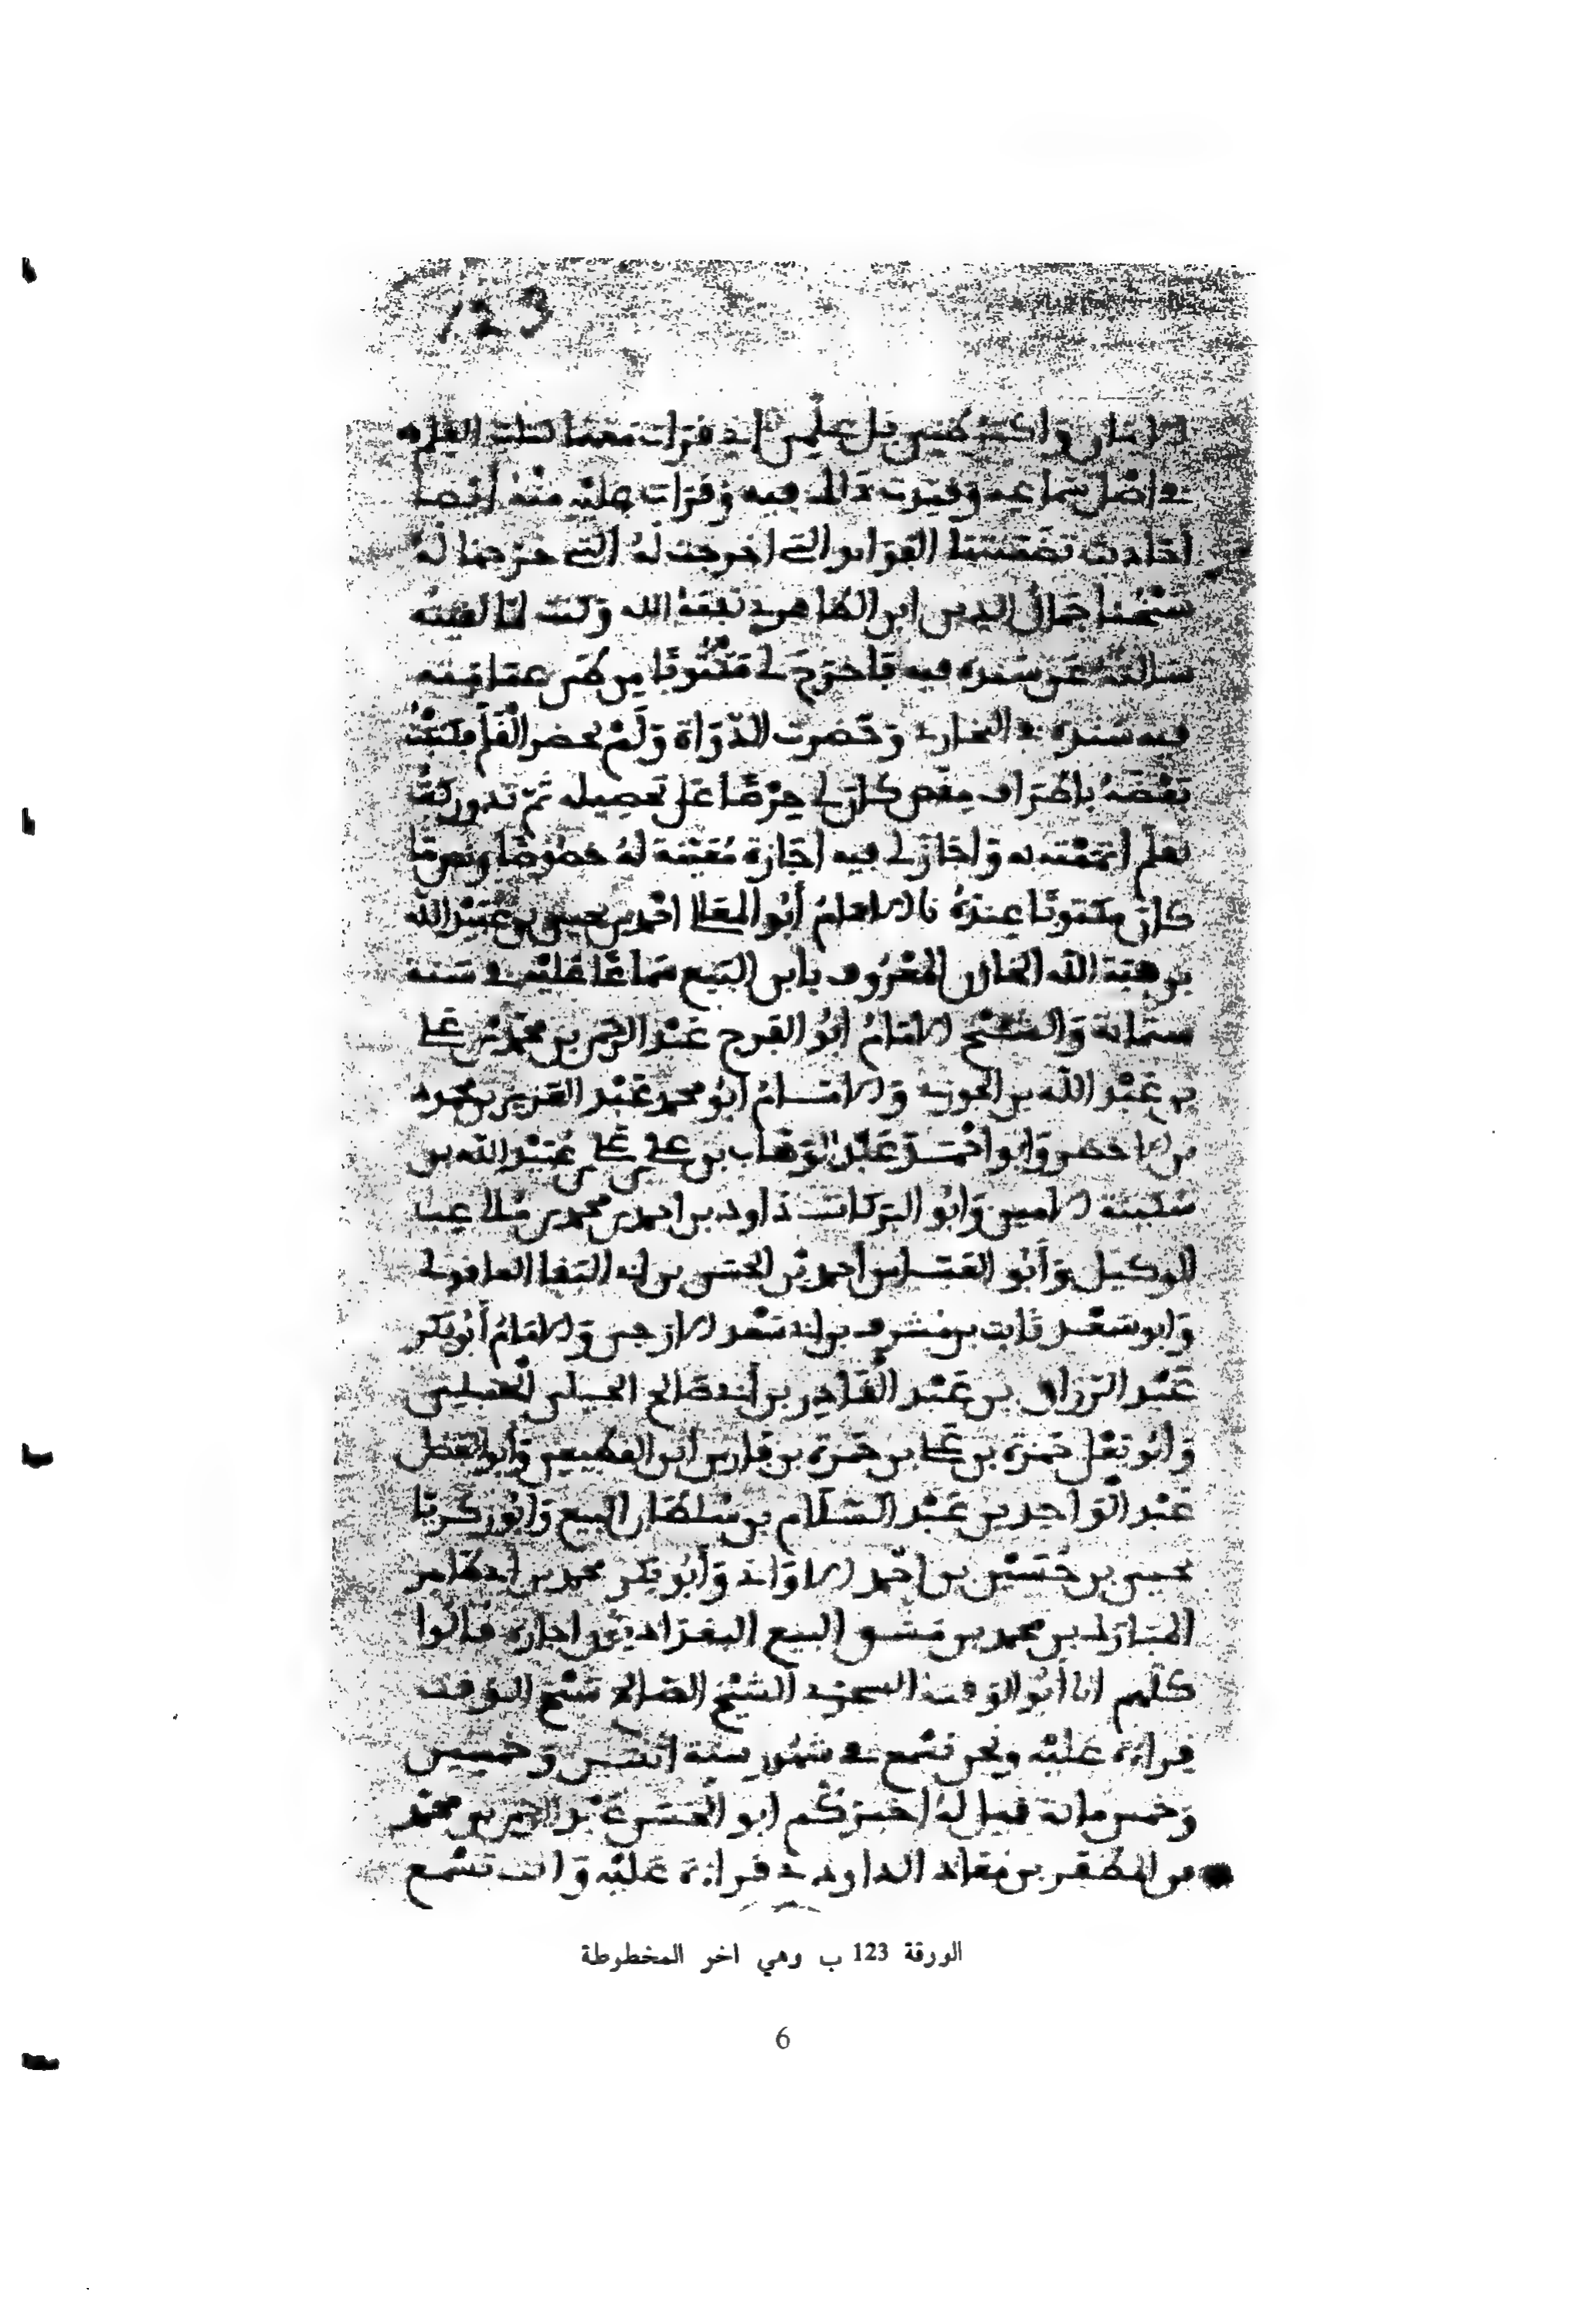 123
في اصل سماعه وقيدت ذالك فيه وَقَرَات عليْه منْهُ أيْضا
احَاديث تضَمّنتها الفَوَايد التي اخرجت لَهُ التي خرّجها لَهُ
شيْخُنا جَمالُ الدين ابن الظاهرى نفعَهُ الله وَكنت لمّا لقيته
سَالتهُ عَن سَنده فيه فَاخرَجَ لي مَكْتُوبًا
فيه سَنده في البخارى وَحَضرت الدّوَاة وَلَمْ يحضر القَلَم فكتبْتُ
بَعْضَهُ باطراف كان لي حِرْصًا عَلى تحصيله ثمّ تدوركتُ
بقلم اتممْته به وَاجَازَ لي فيه اجَازة مُعَيّنة لهُ خصُوصًا
كان مكتوبًا عندَهُ نا الامَامُ أبُو المعَالي احْمد بن يحيى بن عُبَيْد الله
بن هبَة الله الخازن المعْرُوف بابن البَيع سَمَاعًا عَليْه في سَنة
ستماية وَالشيْخ الامَامُ أبُو الفَرج عَبْد الرحمن بن محمّد بن عَلي
بن عَبْد الله بن الجوزى وَالامَامُ أبُو محمد عَبْد العَزيز بن محمود
بن الاخضر وَابو احْمَد عَبْد الوَهاب بن عَلي بن عَلي بن عُبَيْد الله بن
سَكينة الامين وَابُو البَركات دَاود بن احمد بن محمد بن مُلاعب
الوكيل وَأبُو العَبّاس أحمد بْن الحسَن بن ابى البَقا العاقولى
وَابو سَعْد ثَابت بن مشرف بن ابى سَعْد الازجي وَالامَامُ أبُو بَكر
عَبْد الرّزاق بن عَبْد القَادِر بن أبى صَالح الجيلي الحنبلي
وَأبُو يَعْلى حَمزة بن عَلي بن حَمزة بن فَارس ابن القبيطي وَأبو الفضل
عَبْد الوَاحِد بن عَبْد السّلَام بن سُلطان البيع وَأبُو زكريّا
يحيى بن حُسَيْن بن احْمد الاوَانى وَأبُو بَكر محمد بن ابى طاهر
المبَارَك بن محمد بن مَشق البيع البغدادي اجازة قالُوا
كلّهم انا أبُو الوَقت السجزى الشيْخ الصّالح شيْخ الوَقت
قراءة عَليْه ونحن نسْمع في شهُور سنة اثنتين وَخمسين
وَخمس ماية قيل لهُ اخبركُم ابو الحَسَن عَبْد الرحمن بن محمّد
بن المظفر بن مُعَاذ الداودى قراءة عَليْه وَانت تسْمع
الورقة 123 ب وهي اخر المخطوطة
6